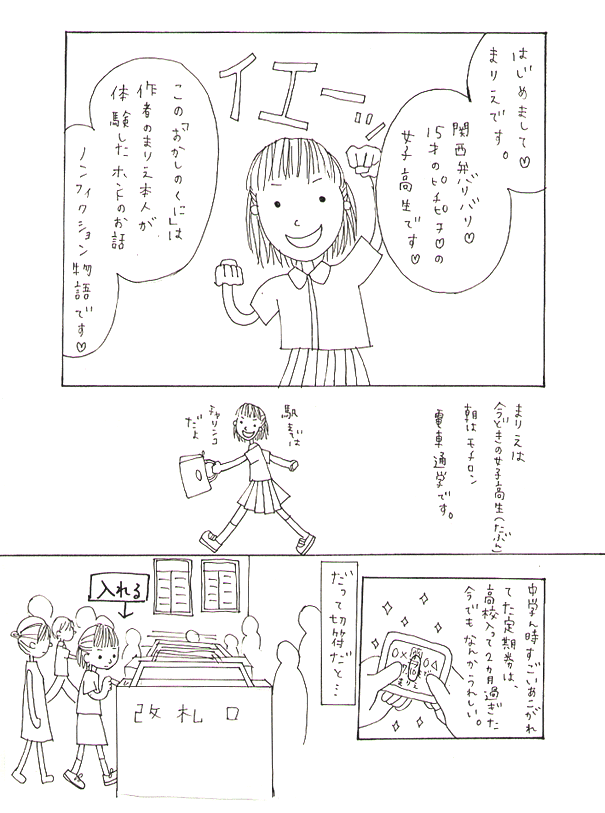 イエーッ
はじめまして♡
まりえです。
関西弁バリバリ♡
15才のピチピチ♡の
女子高生です♡
この「おかしのくに」は
作者のまりえ本人が
体験したホントのお話
ノンフィクション物語です♡
まりえは
今どきの女子高生(たぶん)
朝はモチロン
電車通学です。
駅までは
チャリンコ
だよ
中学ん時すごいあこがれ
てた定期券は、
高校入って2ヵ月過ぎた
今でもなんかうれしい。
だって切符だと…
入れる
改札口